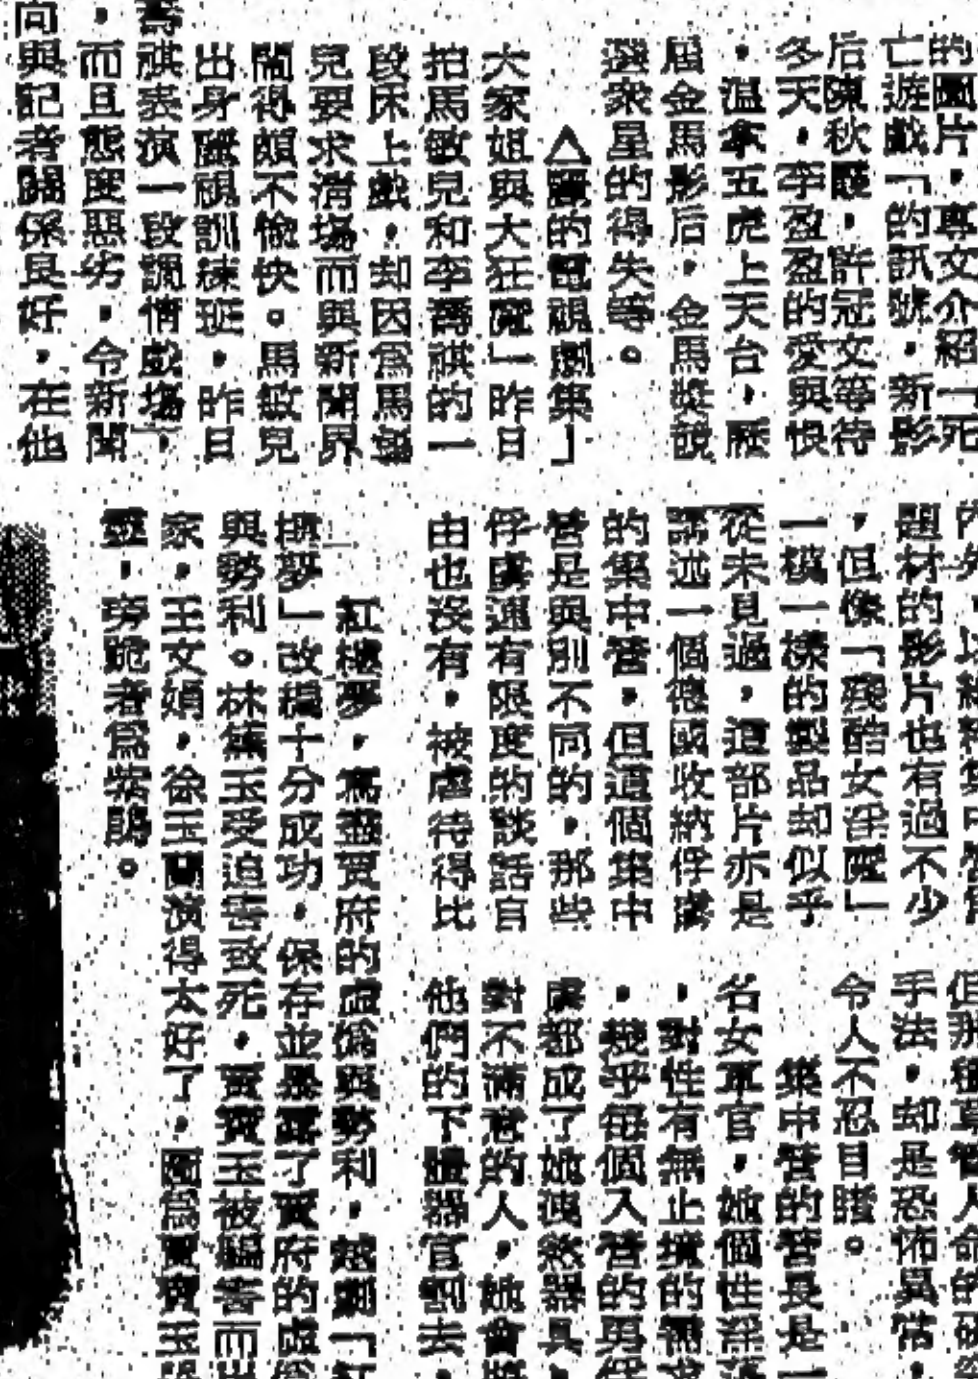 的圖片,專文介紹「死
亡遊戲「的訊號,新影
后陳秋霞,許冠文等待
多天,李盈盈的愛與恨
,溫拿五虎上天台,歷
屆金馬影后,金馬獎競
選衆星的得失等。
△麗的電視劇集」
大家姐與大狂魔「昨日
拍馬敏兒和李喬祺的一
段床上戲,却因爲馬敏
兒要求清場而與新聞界
鬧得頗不愉快。馬敏兒
出身麗視訓練班,昨日
喬祺表演一段調情戲場」
,而且態度惡劣,令新聞
向與記者關係良好,在他
題材的影片也有過不少
,但像「殘酷女淫魔」
一模一樣的製品却似乎
從未見過,這部片亦是
講述一個德國收納俘虜
的集中營,但這個集中
營是與別不同的,那些
俘虜還有限度的談話自
由也沒有,被虐待得比
手法,却是恐怖異常,
令人不忍目睹。
集中營的營長是一
名女軍官,她個性淫蕩
,對性有無止境的需求
,幾乎每個入營的男俘
虜都成了她洩慾器具,
對不滿意的人,她會將
他們的下體器官割去,
紅樓夢,寫盡賈府的虛僞與勢利,越劇「紅
樓夢」改編十分成功,保存並暴露了賈府的虛僞
與勢利。林黛玉受迫害致死,賈寶玉被騙害而出
家,王文娟,徐玉蘭演得太好了,圖爲賈寶玉
靈,旁跪者爲紫鵑。